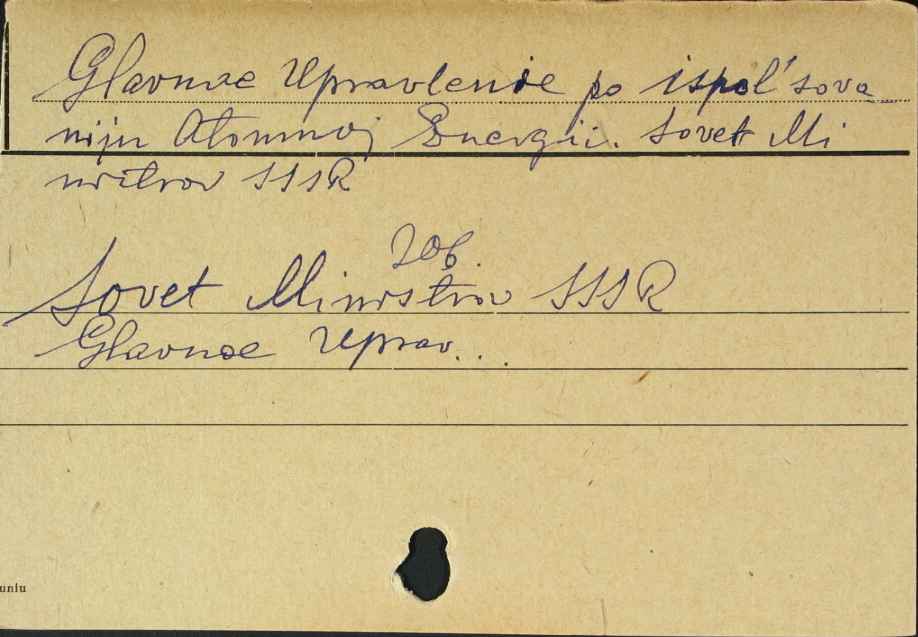 Glavnoe Upravlenie po ispol'sova
niju Atomnoj Energii. Sovet Mi
nistrov SSSR
zob.
Sovet Ministrov SSSR
Glavnoe Uprav...
uniu